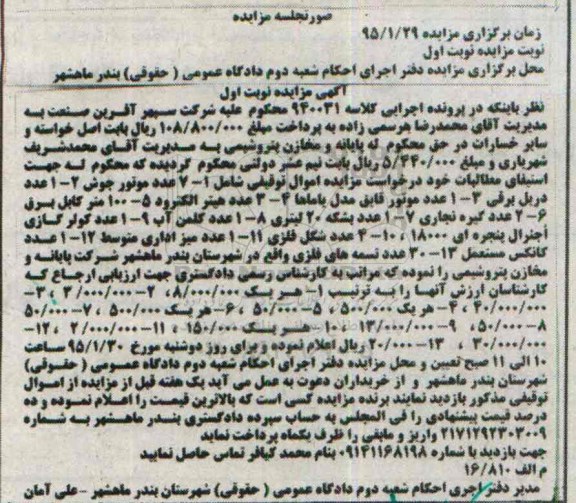 صورتجلسه مزایده
زمان برگزاری مزایده ۹۵/۱/۲۹
نوبت مزایده نوبت اول
محل برگزاری مزایده دفتر اجرای احکام شعبه دوم دادگاه عمومی ( حقوقی) بندر ماهشهر
آگهی مزایده نوبت اول
نظر باینکه در پرونده اجرایی کلاسه ۹۴۰۰۳۱ محکوم علیه شرکت سپهر آفرین صنعت به
مدیریت آقای محمدرضا هرسمی زاده به پرداخت مبلغ ۱۰۸/۸۰۰/۰۰۰ ریال بابت اصل خواسته و
سایر خسارات در حق محکوم له پایانه و مخازن پتروشیمی به مدیریت آقای محمدشریف
شهریاری و مبلغ ۵/۴۴۰/۰۰۰ ریال بابت نیم عشر دولتی محکوم گردیده که محکوم له جهت
استیفای مطالبات خود درخواست مزایده اموال توقیفی شامل ۱- ۷ عدد موتور جوش ۲- ۱ عدد
دریل برقی ۳- ۱ عدد موتور قایق مدل یاماها ۴- ۳ عدد هیتر الکترود ۵- ۱۰۰ متر کابل برق
۶- ۲ عدد گیره نجاری ۷- ۱ عدد بشکه ۲۰ لیتری ۸- ۱ عدد کلمن آب ۹- ۱ عدد کولر گازی
اجنرال پنجره ای ۱۸۰۰۰ ، ۱۰- ۴ عدد شگل فلزی ۱۱- ۱ عدد میز اداری متوسط ۱۲- ۱ عدد
کانکس مستعمل ۱۳- ۳۰ عدد تسمه های فلزی واقع در شهرستان بندر ماهشهر شرکت پایانه و
مخازن پتروشیمی را نموده که مراتب به کارشناس رسمی دادگستری جهت ارزیابی ارجاع که
کارشناسان ارزش آنها را به ترتیب ۱- هر یک ۸/۰۰۰/۰۰۰، ۲- ۳/۰۰۰/۰۰۰ ، ۳-
۴۰/۰۰۰/۰۰۰ ، ۴- هر یک ۵۰۰/۰۰۰ ، ۵- ۵۰/۰۰۰ ، ۶- هر یک ۵۰۰/۰۰۰ ، ۷- ۵۰/۰۰۰
۸- ۵۰/۰۰۰، ۹- ۱۳/۰۰۰/۰۰۰ ، ۱۰- هر یک ۱۵۰/۰۰۰ ، ۱۱- ۲/۰۰۰/۰۰۰ ، ۱۲-
۳۰/۰۰۰/۰۰۰ ، ۱۳- ۲۰/۰۰۰ ریال اعلام نموده و برای روز دوشنبه مورخ ۹۵/۱/۳۰ ساعت
۱۰ الی ۱۱ صبح تعیین و محل مزایده دفتر اجرای احکام شعبه دوم دادگاه عمومی ( حقوقی)
شهرستان بندر ماهشهر و از خریداران دعوت به عمل می آید یک هفته قبل از مزایده از اموال
توقیفی مذکور بازدید نمایند برنده مزایده کسی است که بالاترین قیمت را اعلام نموده و ده
درصد قیمت پیشنهادی را فی المجلس به حساب سپرده دادگستری بندر ماهشهر به شماره
۲۱۷۱۲۹۲۳۰۳۰۰۹ واریز و مابقی را ظرف یکماه پرداخت نماید
جهت بازدید با شماره ۰۹۱۴۱۱۶۸۱۹۸ بنام محمد کیافر تماس حاصل نمایید
م الف ۱۶/۸۱۰
مدیر دفتر اجری احکام شعبه دوم دادگاه عمومی ( حقوقی) شهرستان بندر ماهشهر - علی آمان